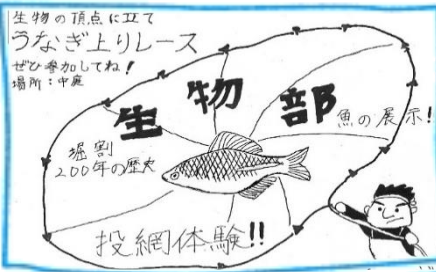 生物の頂点に立て
うなぎ上りレース
ぜひ参加してね!
場所:中庭
生物部
魚の展示!
堀割
200年の歴史
投網体験!!